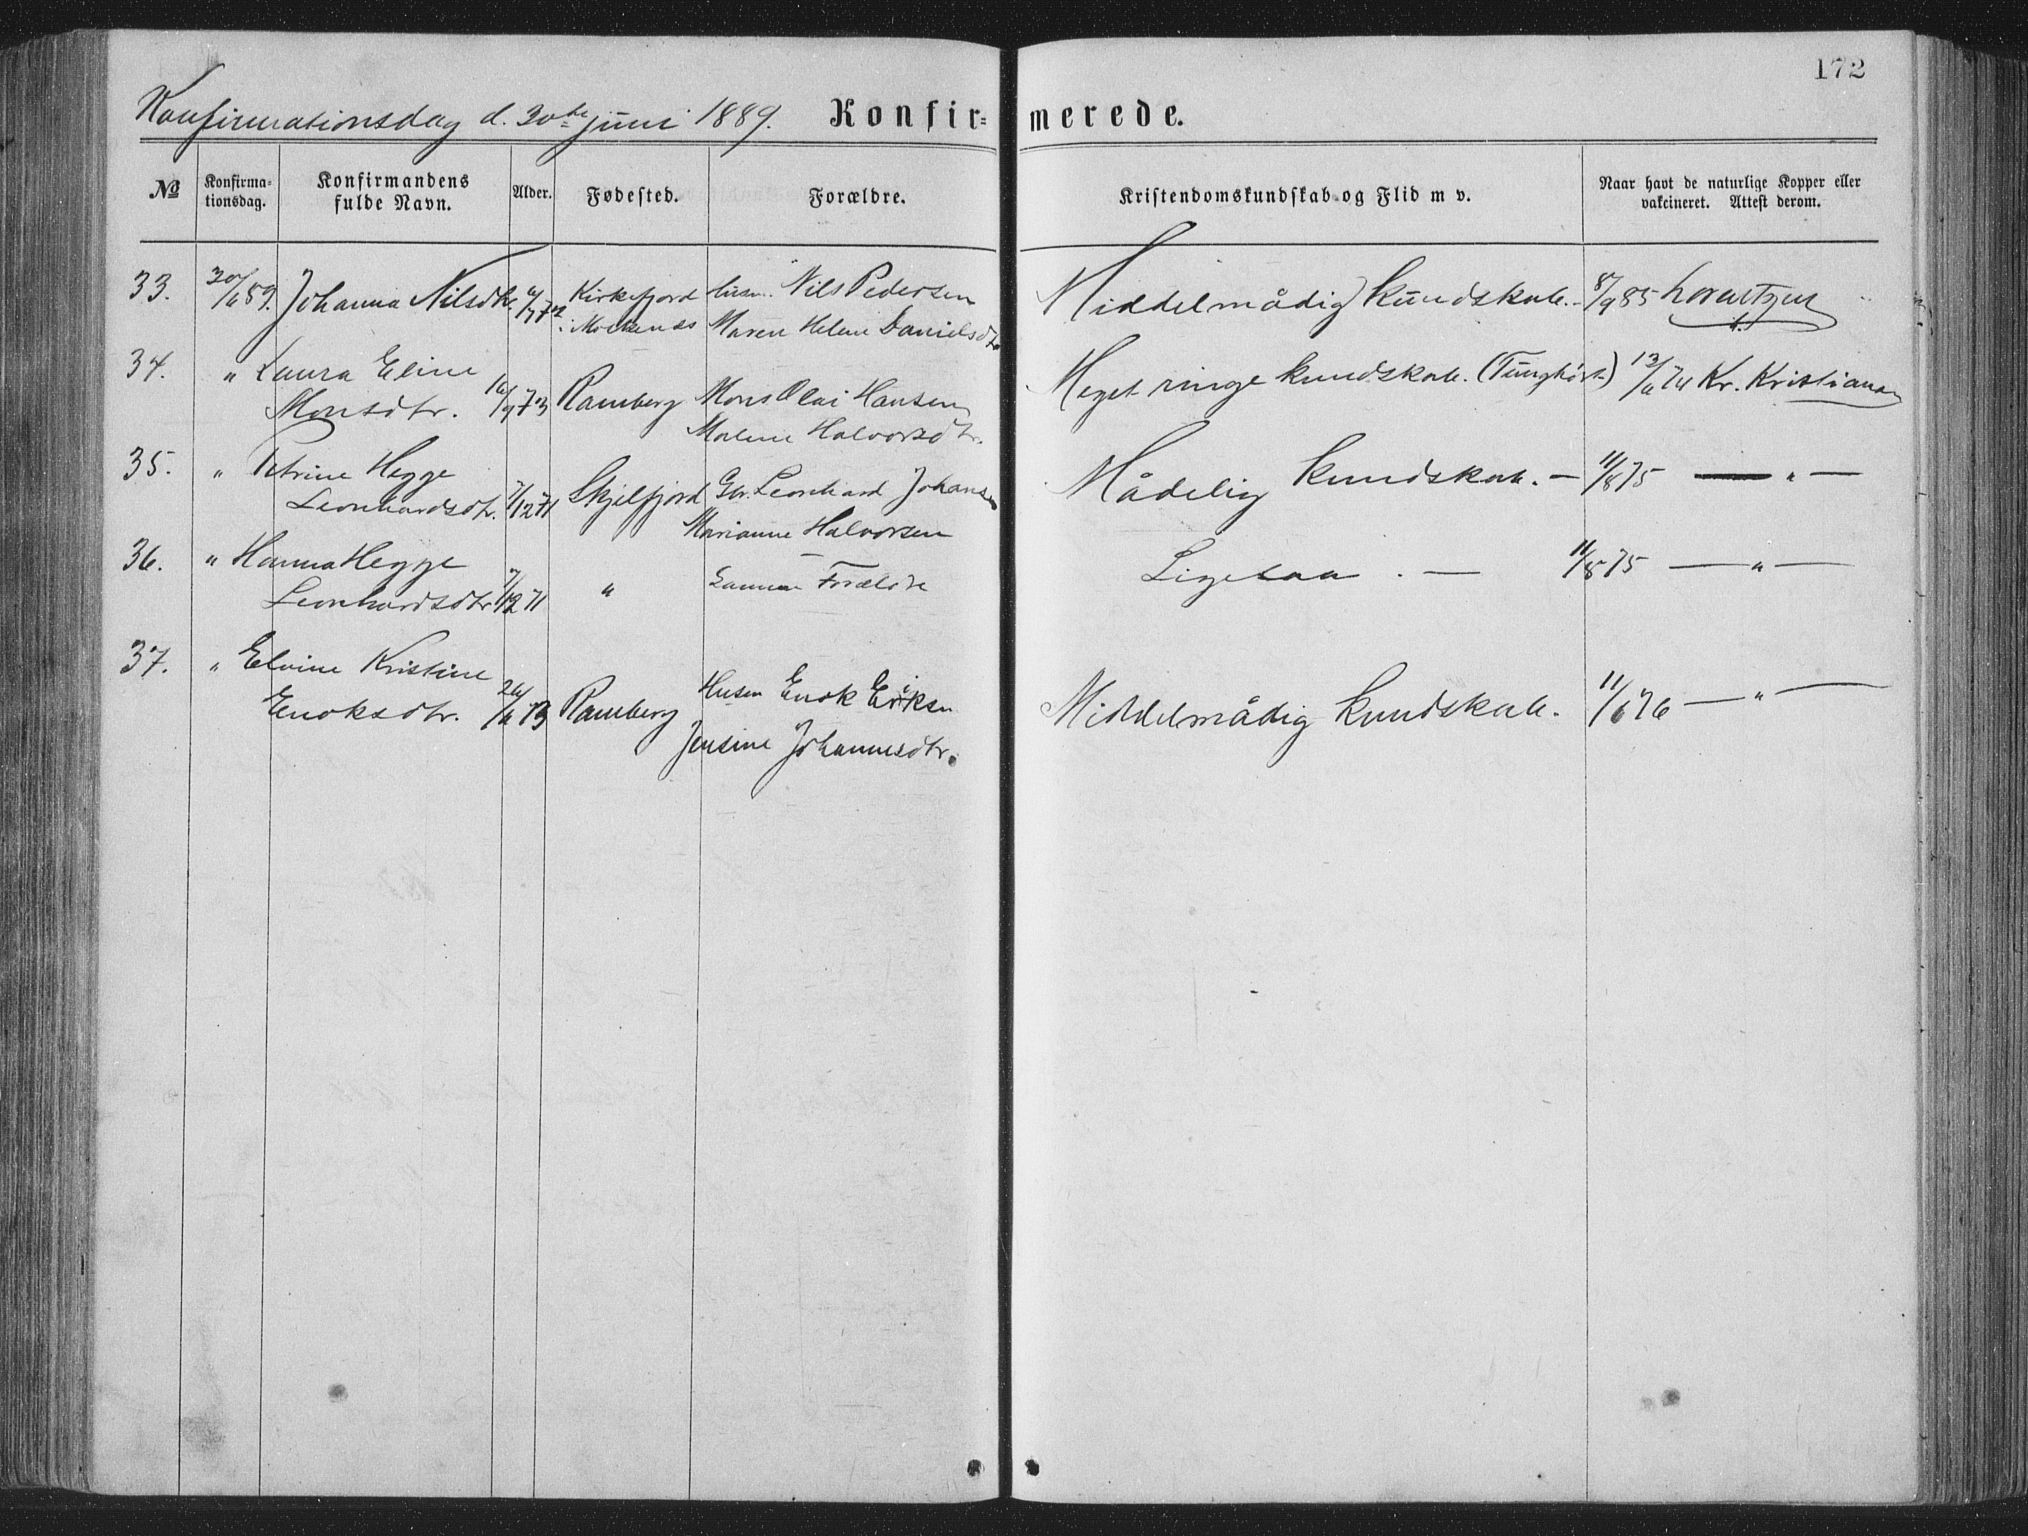 172
Konfirmationsdag d. 30te juni 1889. Konfir= merede.
№ Konfirma=tionsdag. Konfirmandens fulde Navn. Alder. Fødested. Forældre. Kristendomskundskab og Flid m v. Naar havt de naturlige Kopper eller vakcineret. Attest derom.
33. 30/6 89. Johanna Nilsdtr. Kirkefjord Nils Pedersen Middelmådig kundskab. 8/9 85 Lorentzen
Maren Helene Danielsdtr
34. " Laura Eline Meget ringe kundskab. (Tunghørt) 13/6 74 Kr. Kristiansen
Monsdtr. 16/9 73 Ramberg Mons Olai Hansen
Malene Halvorsdtr.
35. " Petrine Hegge Mådelig kundskab. — 11/8 75 — " —
Leonhardsdtr. 7/12 71 Skjelfjord Gbr. Leonhard Johansen
Marianne Halvorsen
36. " Hanna Hegge Ligesaa. — 11/8 75 — " —
Leonhardsdtr 7/12 71 " Samme Forældre
37. " Elvine Kristine
Enoksdtr. 26/6 73 Ramberg Husm Enok Eriksen Middelmådig kundskab. 11/6 76 — " —
Jensine Johannesdtr.